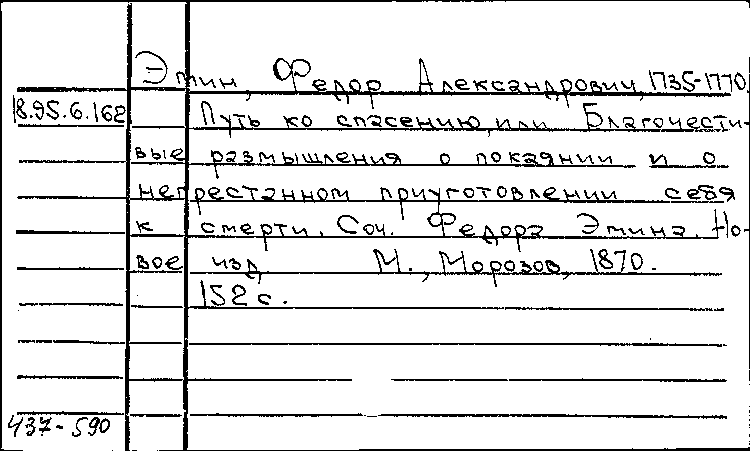 Эмин, Федор Александрович, 1735-1770.
18.95.6.162
Путь ко спасению, или Благочести-
вые размышления о покаянии и о
непрестанном приуготовлении себя
к смерти. Соч. Федора Эмина. Но-
вое изд. М., Морозов, 1870.
152 с.
437-590